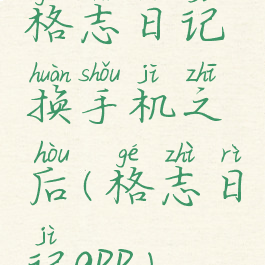 格志日记
huàn shǒu jī zhī
换手机之
hòu gé zhì rì
后(格志日
jì
记app)